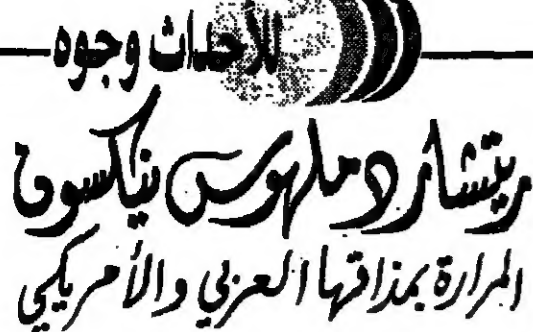 للأحداث وجوه
ريتشارد ملهوس نيكسون
المرارة بمذاقها العربي والأمريكي